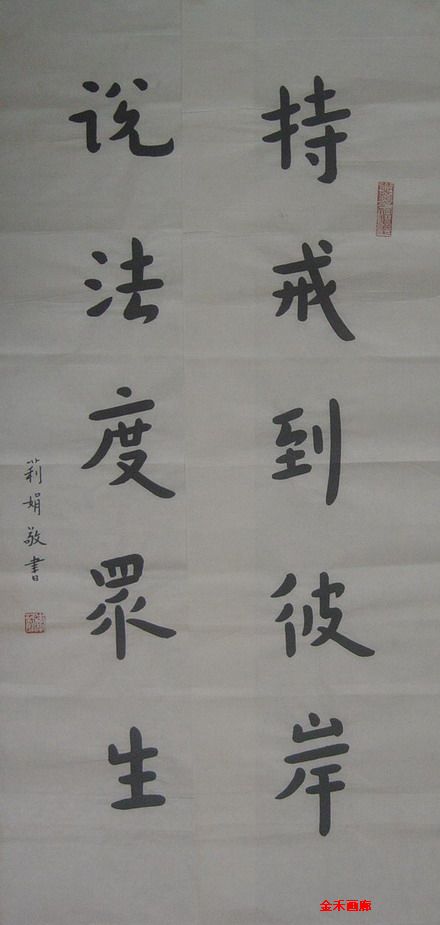 持戒到彼岸
说法度眾生
莉娟敬書
金禾画廊